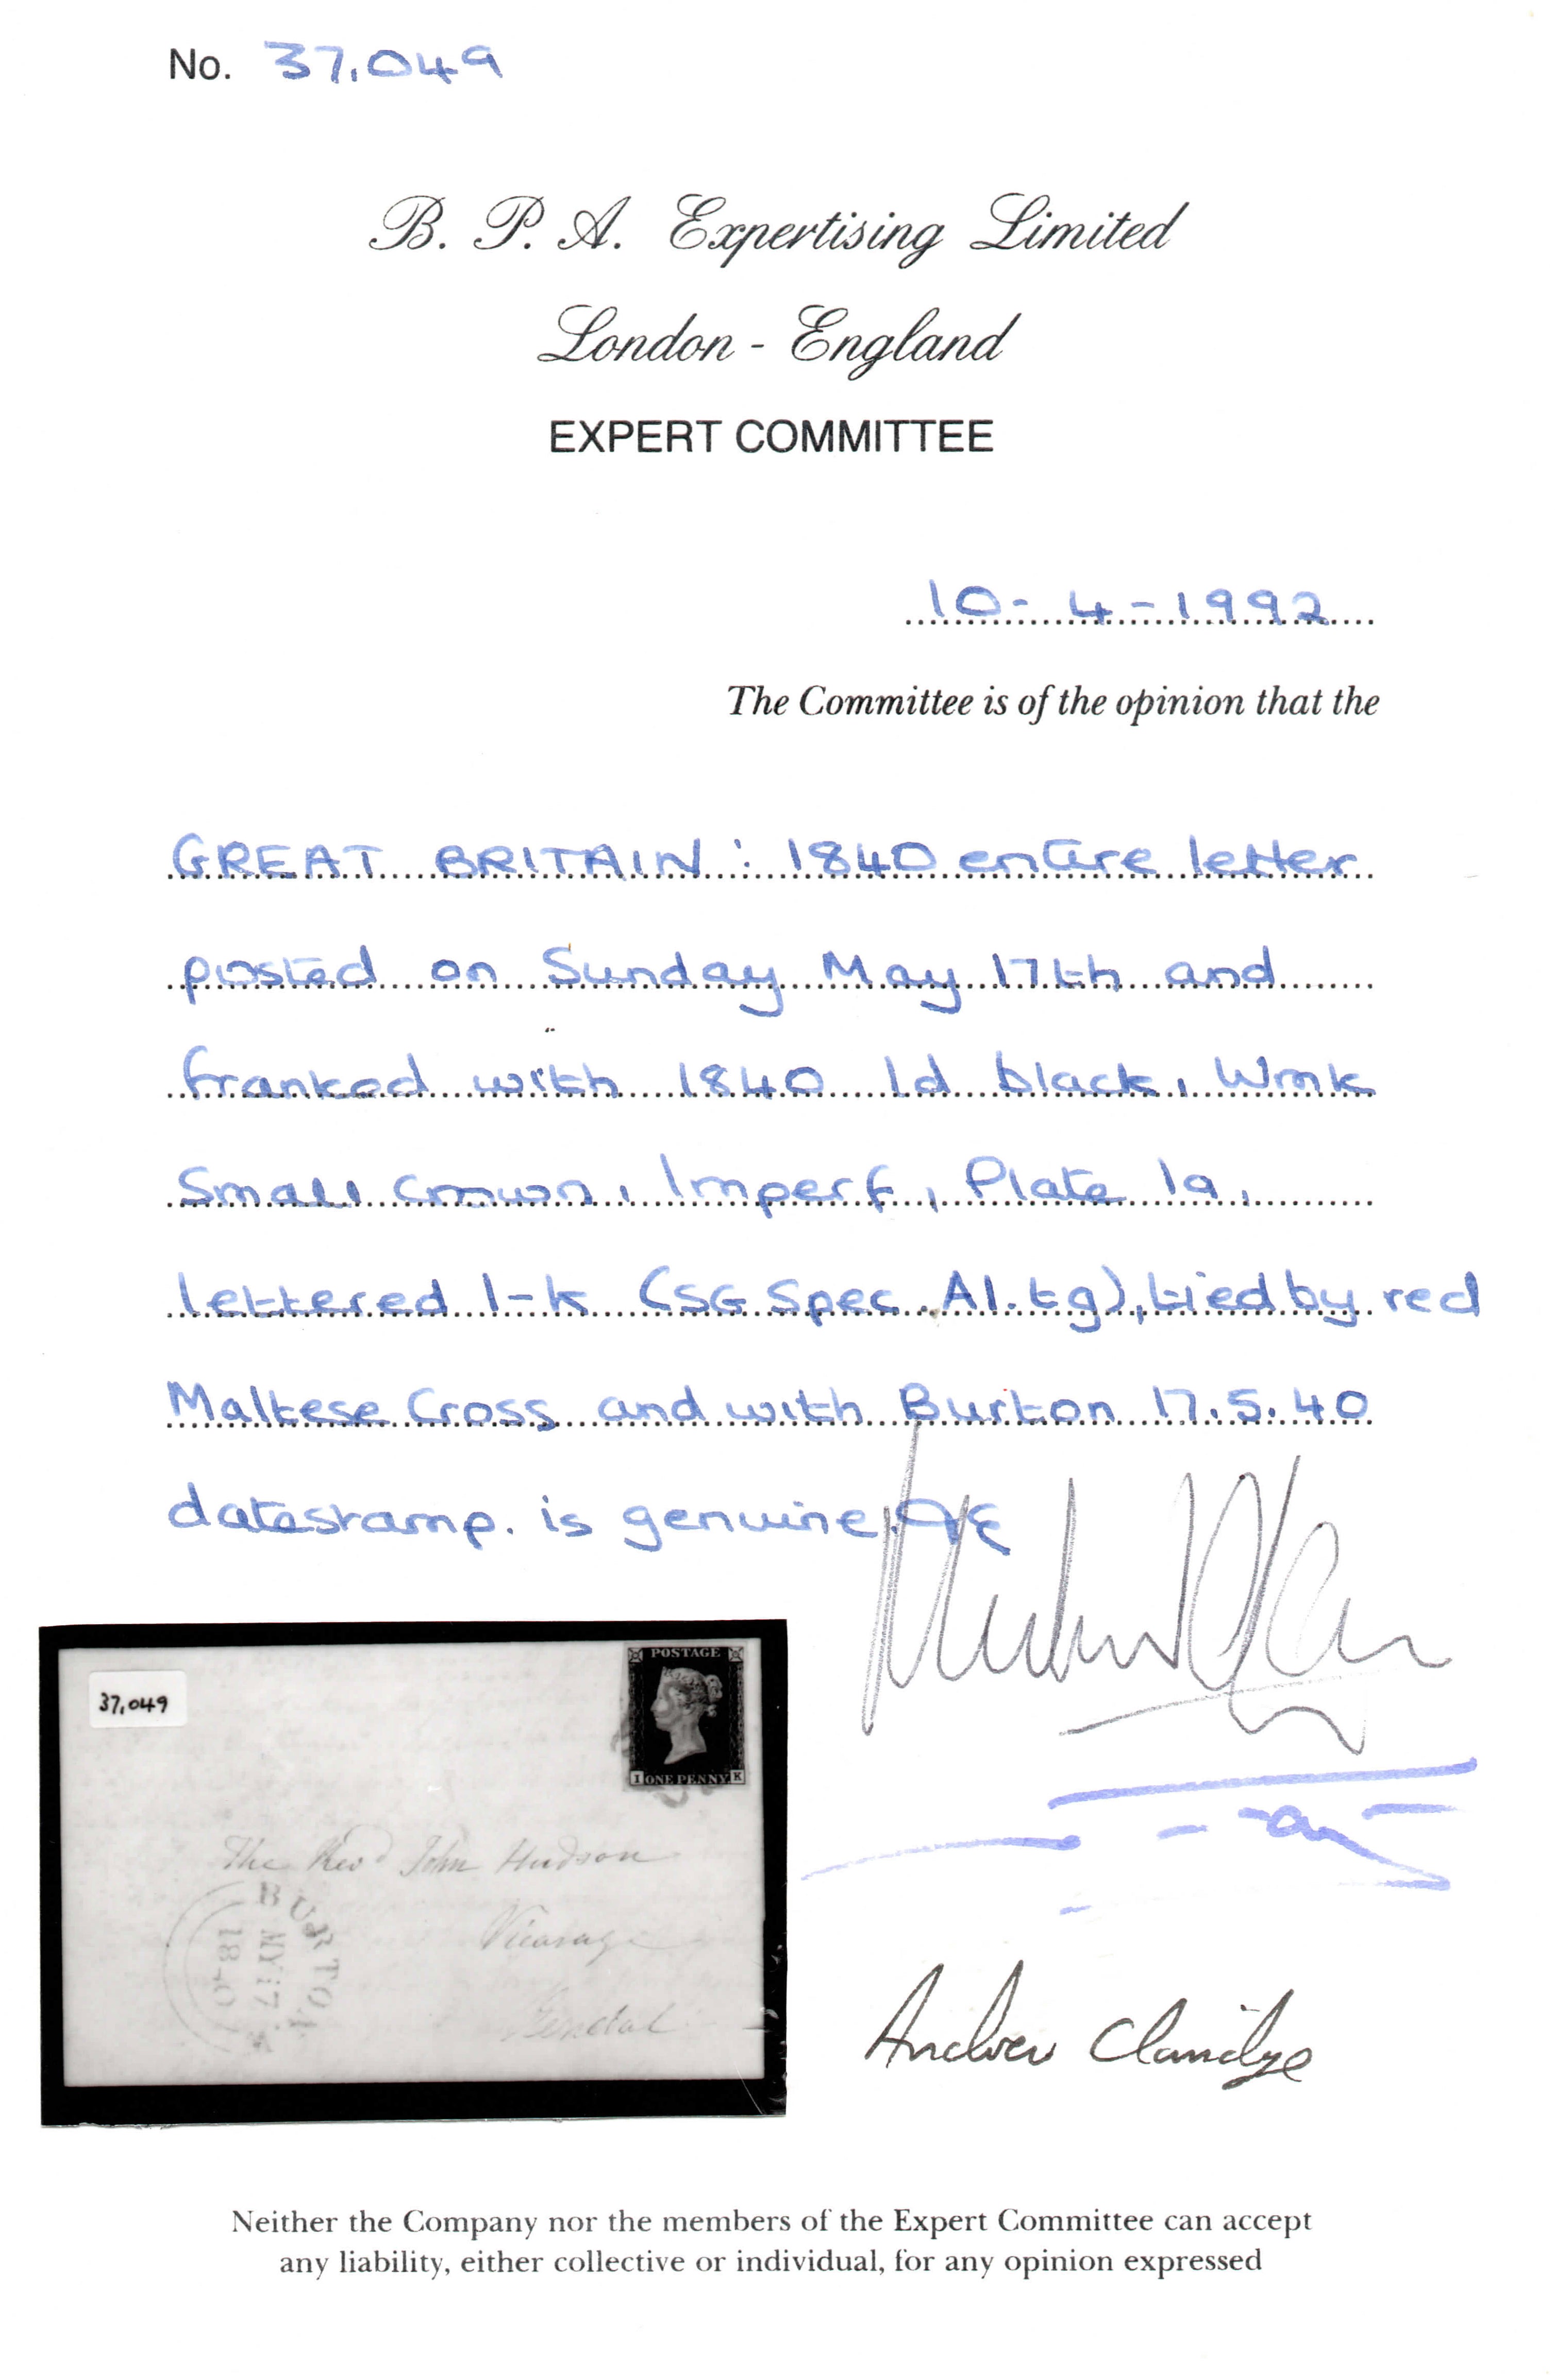 No. 37,049
B. P. A. Expertising Limited
London - England
EXPERT COMMITTEE
10-4-1992
The Committee is of the opinion that the
GREAT BRITAIN: 1840 entire letter
posted on Sunday May 17th and
franked with 1840 1d black, Wmk
Small crown, Imperf, Plate 1a,
lettered I-K (SG Spec A1.tg), tied by red
Maltese Cross and with Burton 17.5.40
datestamp. is genuine.
37,049
POSTAGE
I ONE PENNY K
The Revd John Hudson
Vicarage
Kendal
BURTON
MY 17
1840
Andrew Claridge
Neither the Company nor the members of the Expert Committee can accept
any liability, either collective or individual, for any opinion expressed